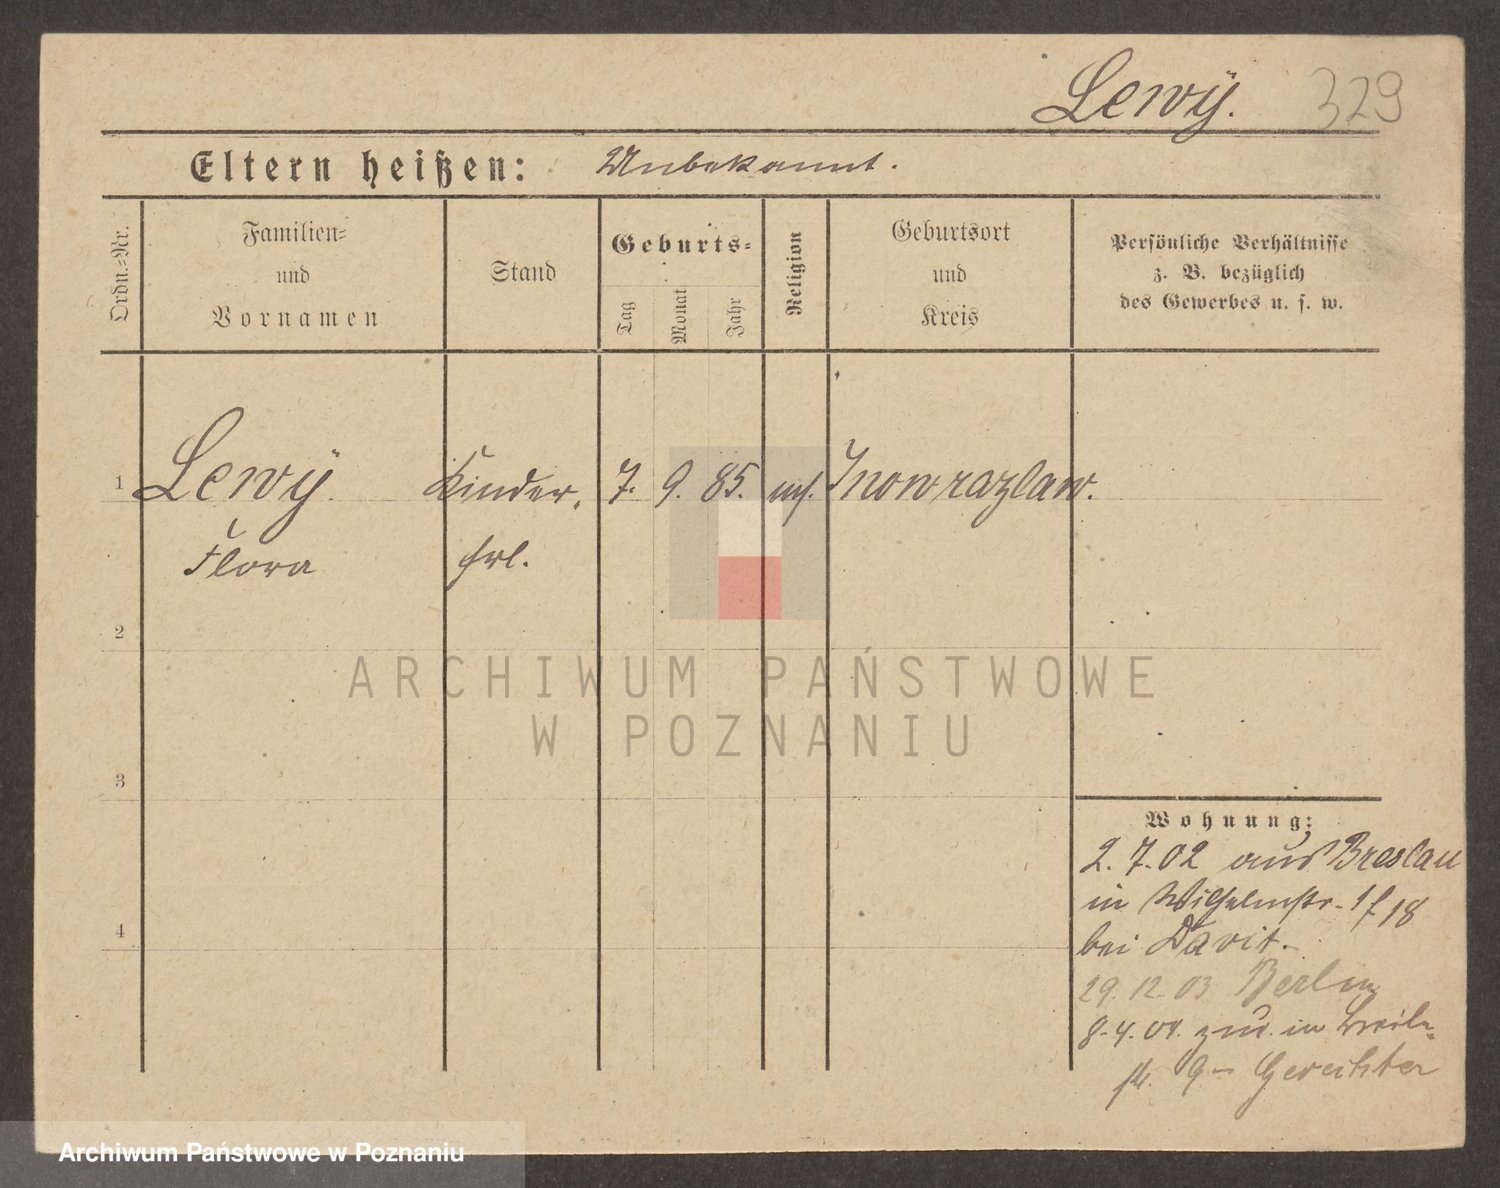 Lewÿ. 329
Eltern heißen: Unbekannt.
Ordn.-Nr.
Familien-
und
Vornamen
Stand
Geburts-
Tag
Monat
Jahr
Religion
Geburtsort
und
Kreis
Persönliche Verhältnisse
z. B. bezüglich
des Gewerbes u. s. w.
1 Lewÿ Kinder, 7. 9. 85. Inowrazlaw.
Flora frl.
2
3
4
Wohnung:
2. 7. 02 aus Breslau
in Wilhelmstr. 18
bei Davit.
29. 12 03 Berlin
8. 4. 04. zur. in Breite-
str. 9 - Gerechter
ARCHIWUM PAŃSTWOWE
W POZNANIU
Archiwum Państwowe w Poznaniu